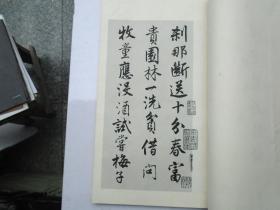 刹那斷送十分春富
貴園林一洗貧借问
牧童應没酒試嘗梅子